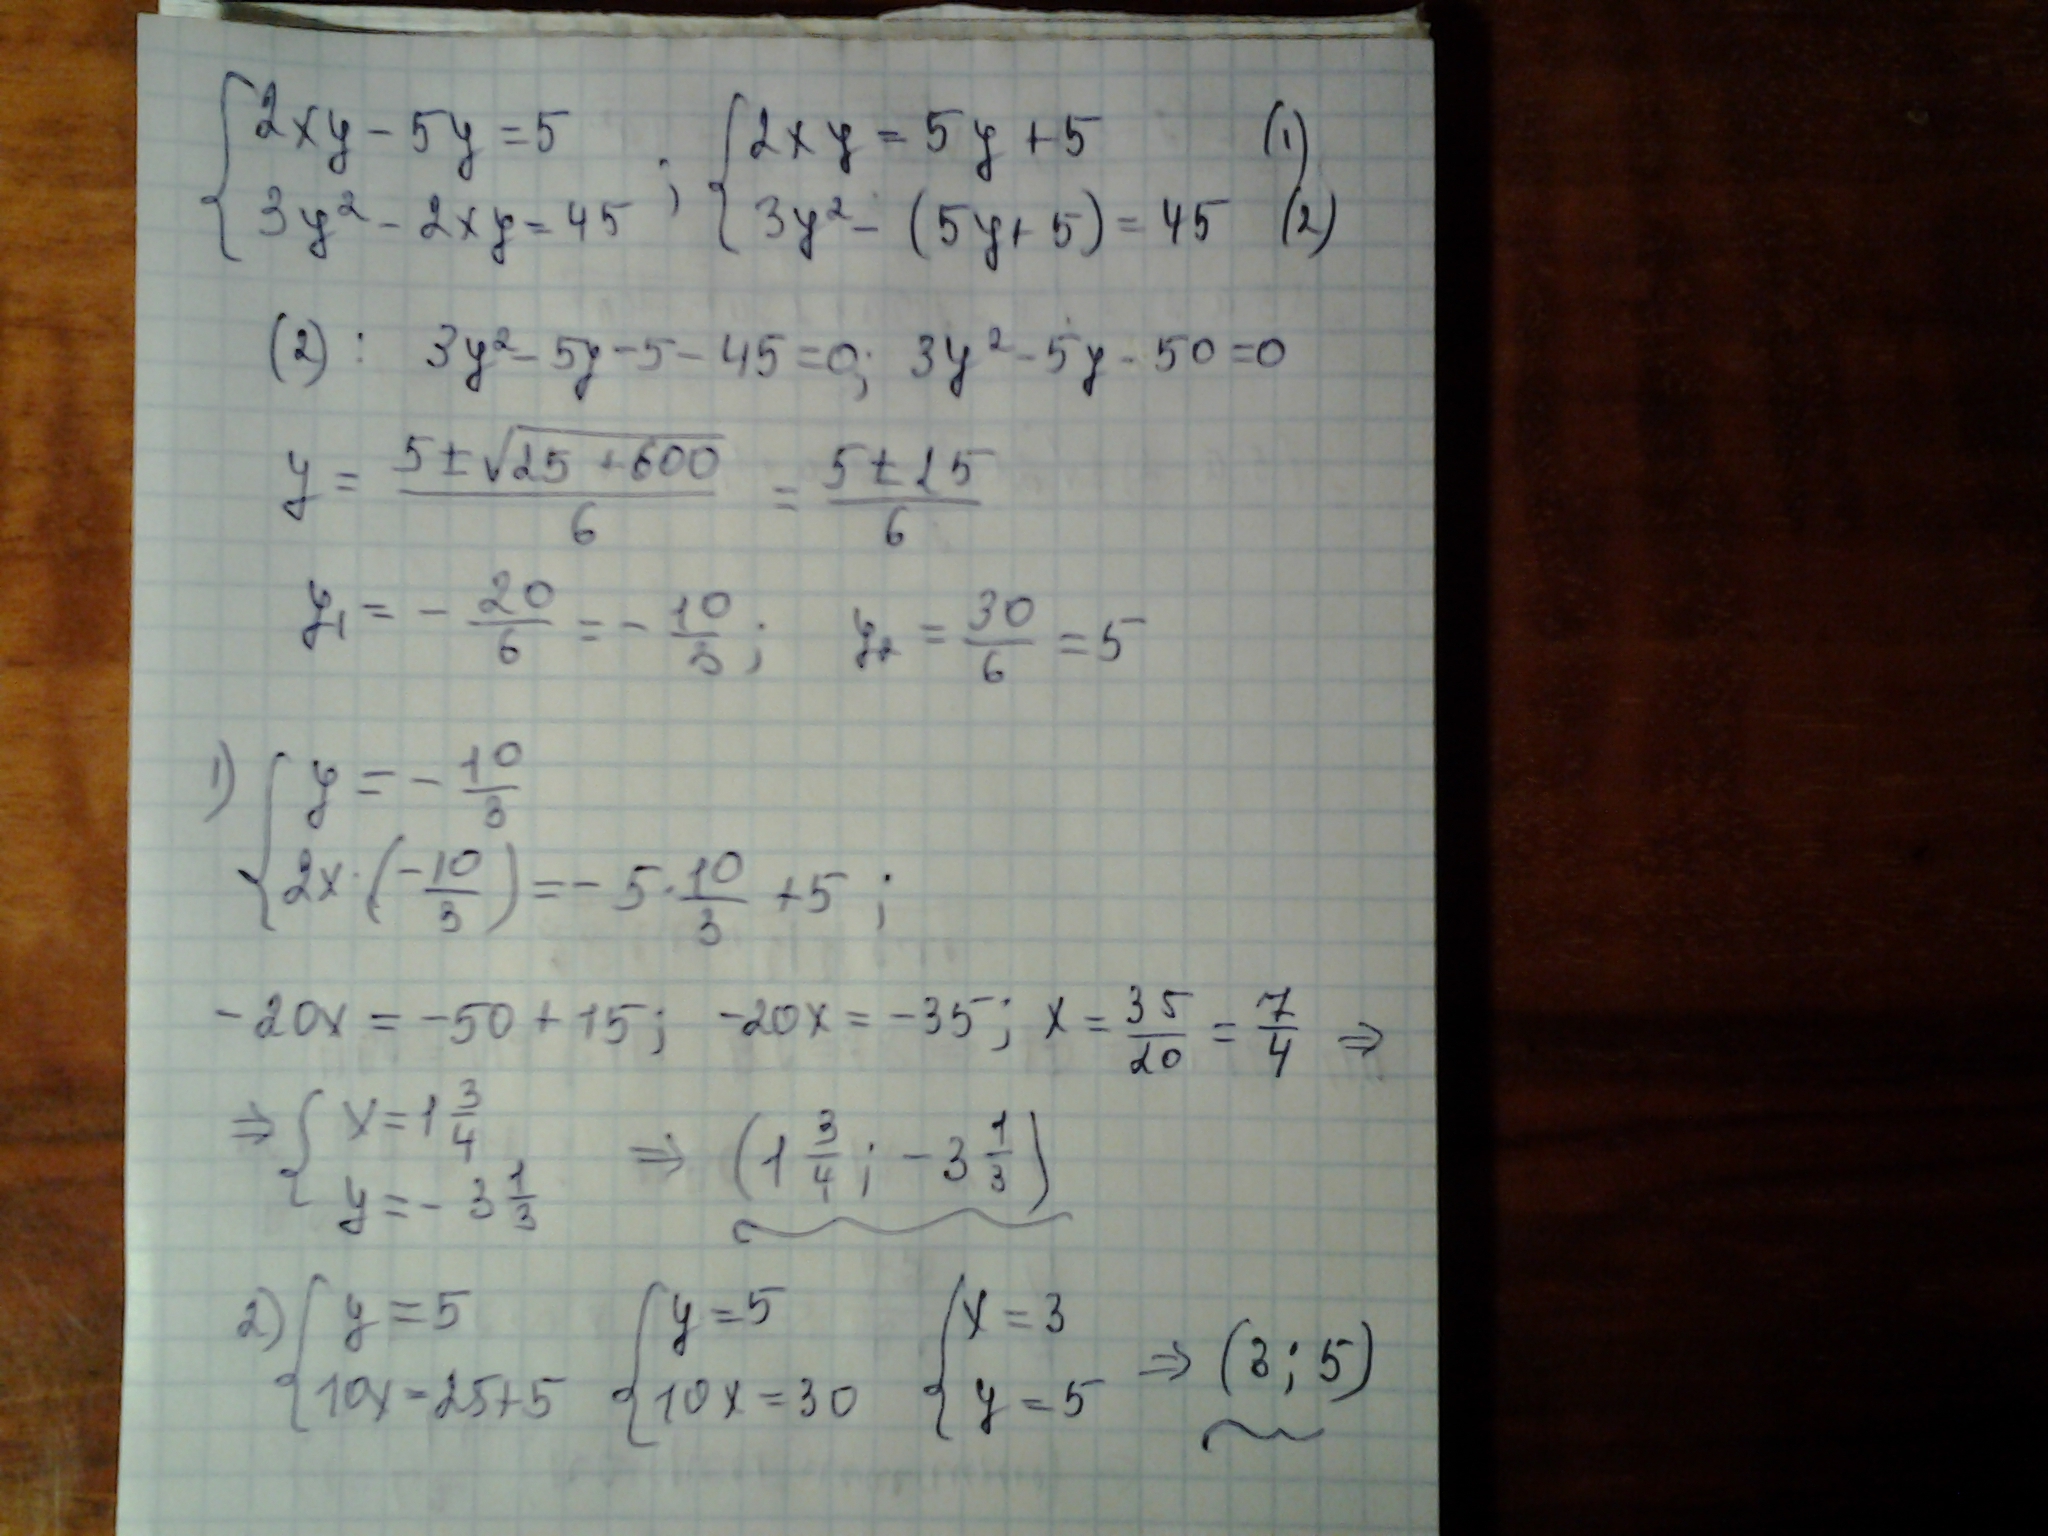 { 2xy - 5y = 5 ; { 2xy = 5y + 5 (1)
{ 3y² - 2xy = 45 { 3y² - (5y + 5) = 45 (2)
(2): 3y² - 5y - 5 - 45 = 0; 3y² - 5y - 50 = 0
y = (5 ± √(25 + 600))/6 = (5 ± 25)/6
y₁ = - 20/6 = - 10/3; y₂ = 30/6 = 5
1) { y = - 10/3
{ 2x · (-10/3) = - 5 · 10/3 + 5 ;
-20x = -50 + 15; -20x = -35; x = 35/20 = 7/4 ⇒
⇒ { x = 1 3/4
{ y = - 3 1/3 ⇒ (1 3/4 ; - 3 1/3)
2) { y = 5 { y = 5 { x = 3 ⇒ (3; 5)
{ 10x = 25 + 5 { 10x = 30 { y = 5